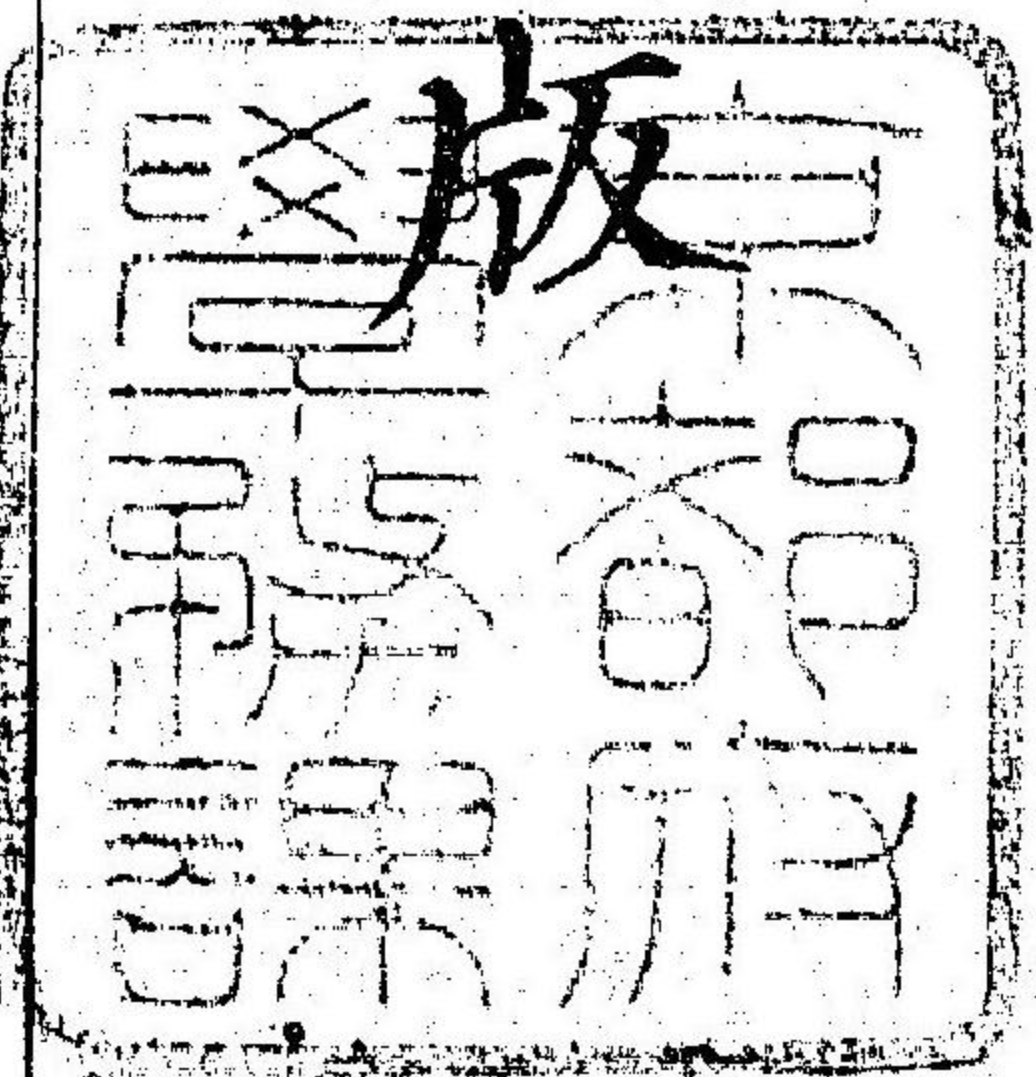 版
京都府
學務課